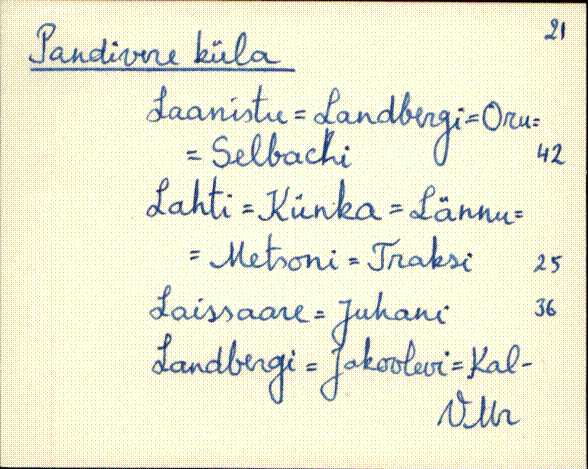 21
Pandivere küla
Laanistu = Landbergi = Oru =
= Selbachi 42
Lahti = Künka = Lännu =
= Metsoni = Traksi 25
Laissaare = Juhani 36
Landbergi = Jakoolevi = Kal-
VMr